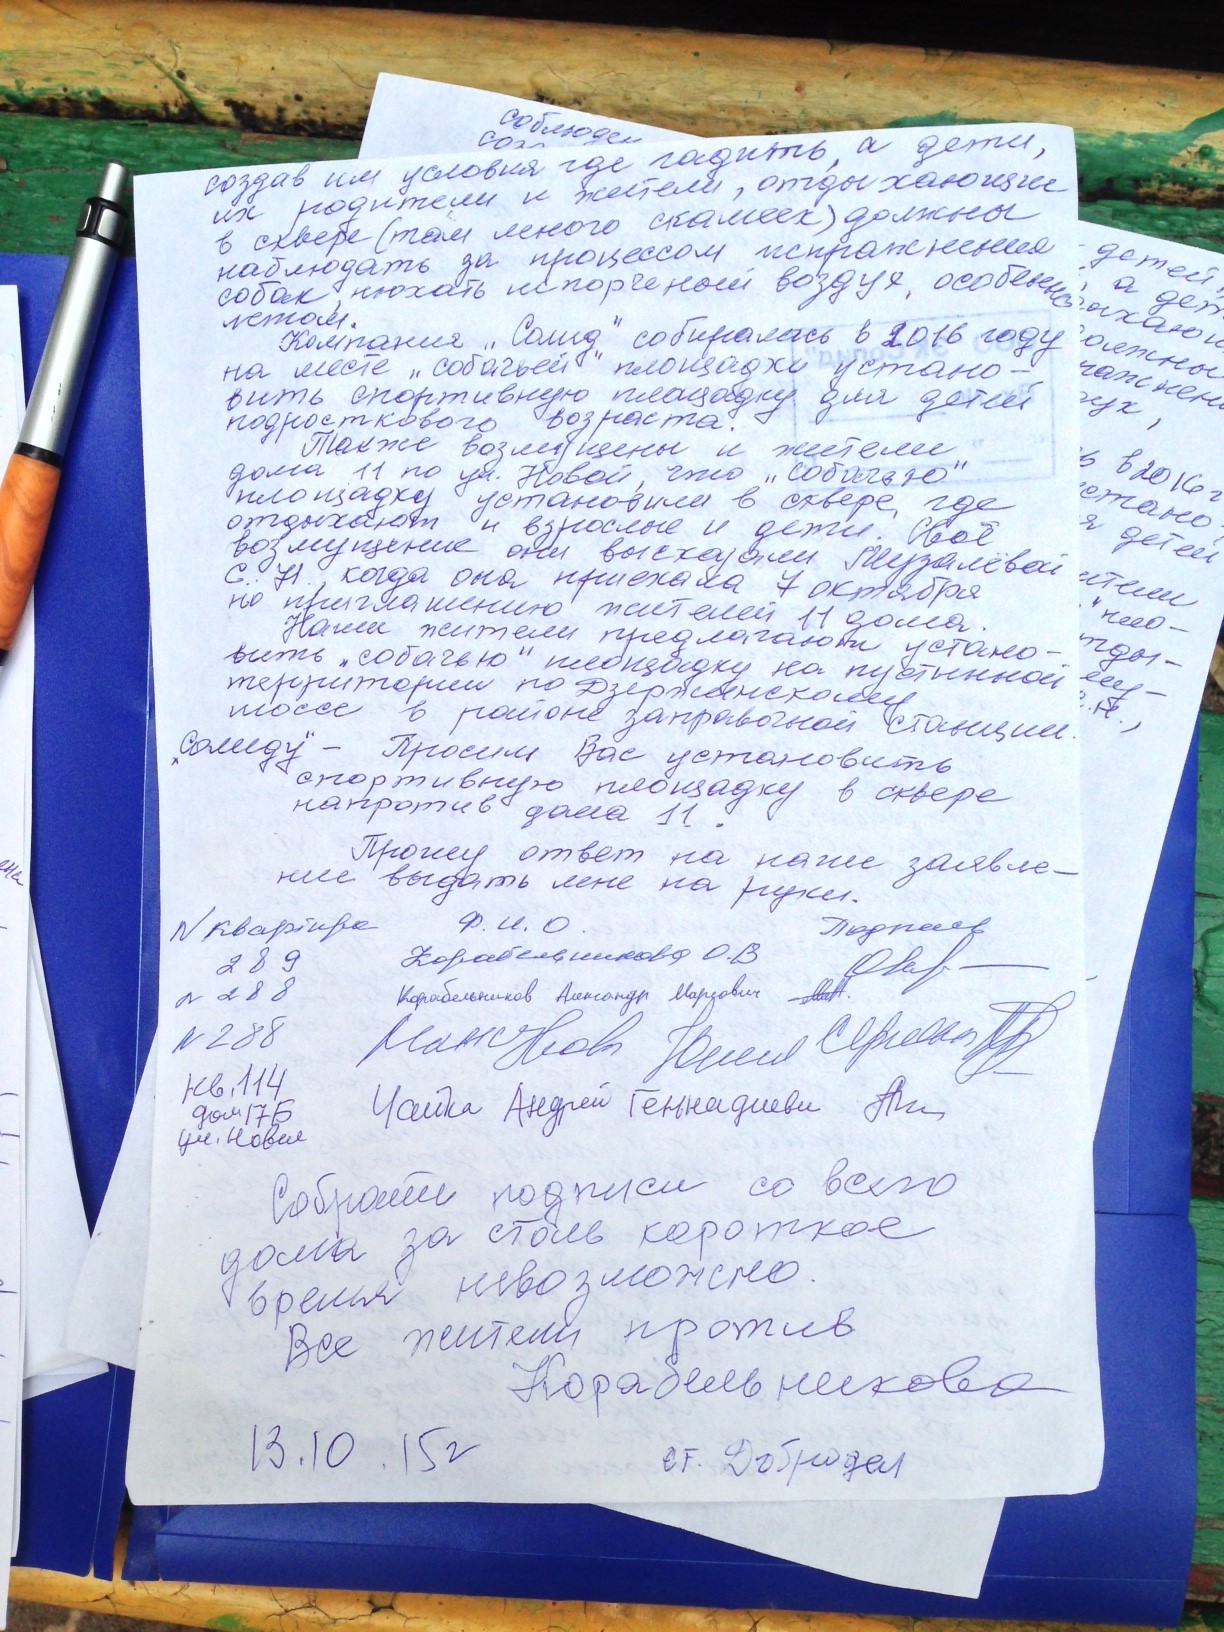 соблюден
создав им условия где гадить, а дети,
их родители и жители, отдыхающие
в сквере (там много скамеек) должны
наблюдать за процессом испражнения
собак, нюхать испорченый воздух, особенно
летом.
Компания „Солид" собиралась в 2016 году
на месте „собачьей" площадки устано-
вить спортивную площадку для детей
подросткового возраста.
Также возмущены и жители
дома 11 по ул. Новой, что „собачью"
площадку установили в сквере, где
отдыхают и взрослые и дети. Своё
возмущение они высказали Музалёвой
С. Н., когда она приехала 7 октября
по приглашению жителей 11 дома.
Наши жители предлагают устано-
вить „собачью" площадку на пустынной
территории по Дзержинскому
шоссе в районе заправочной станции.
„Солиду" – Просим Вас установить
спортивную площадку в сквере
напротив дома 11.
Прошу ответ на наше заявле-
ние выдать мне на руки.
N квартира Ф.И.О. Подпись
289 Корабельникова О.В
N 288 Корабельников Александр Маркович
N 288 Юлия Сергеевна
кв. 114
дом 17Б Чайка Андрей Геннадиеви
ул. Новая
Собрать подписи со всего
дома за столь короткое
время невозможно.
Все жители против
Корабельникова
13.10.15г ст. Добродел
детей,
а дет
должны
в 2016 г
устано-
детей